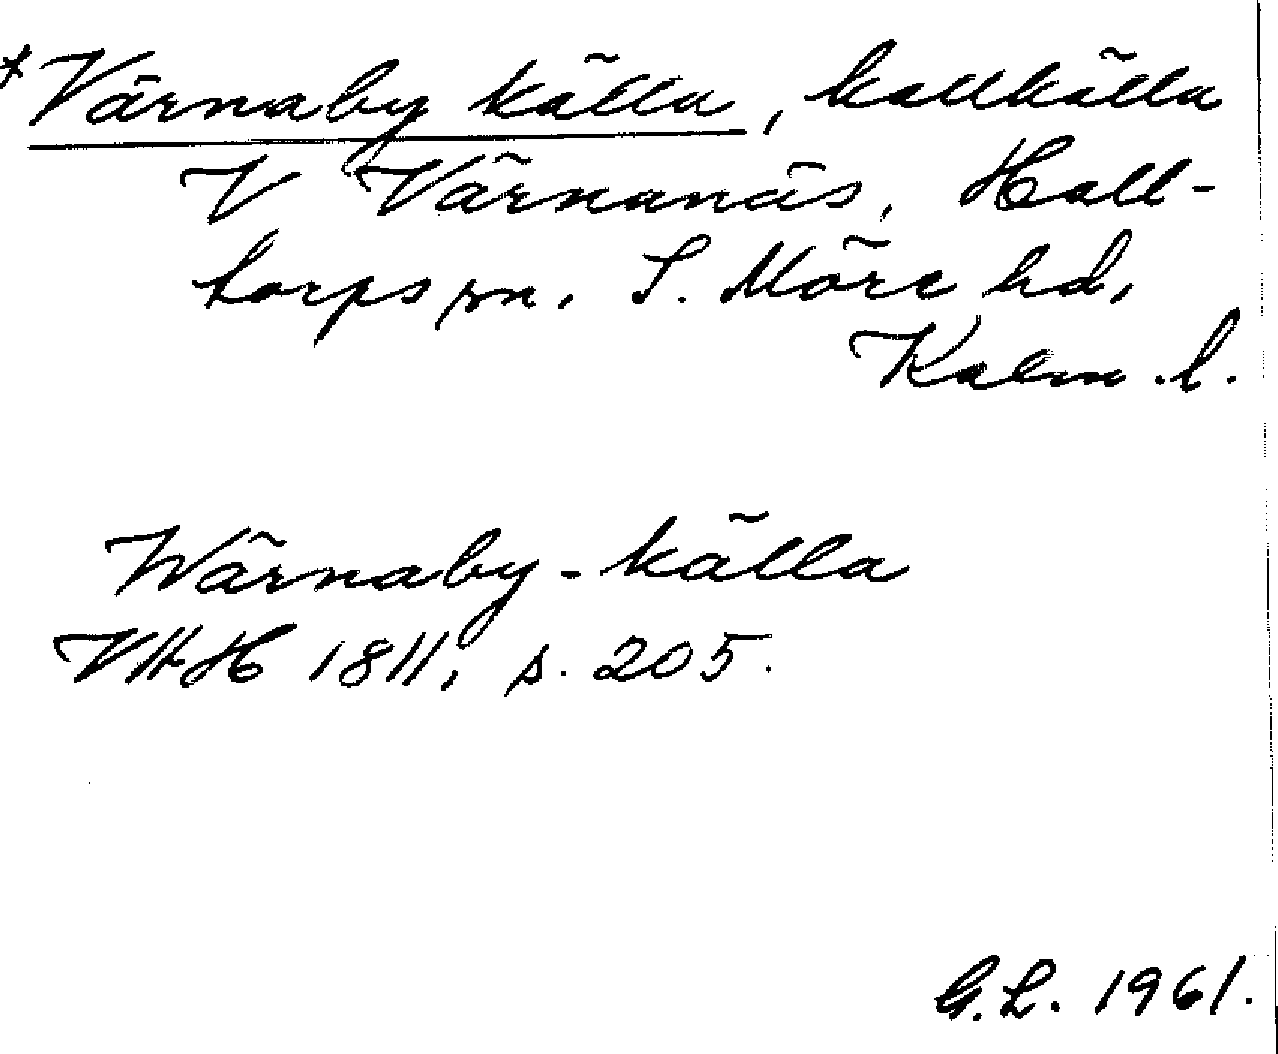 *Värnaby källa, kallkälla
V Värnanäs, Hall-
torps sn. S. Möre hd,
Kalm. l.
Wärnaby-källa
VHH 1811, s. 205.
G.L. 1961.